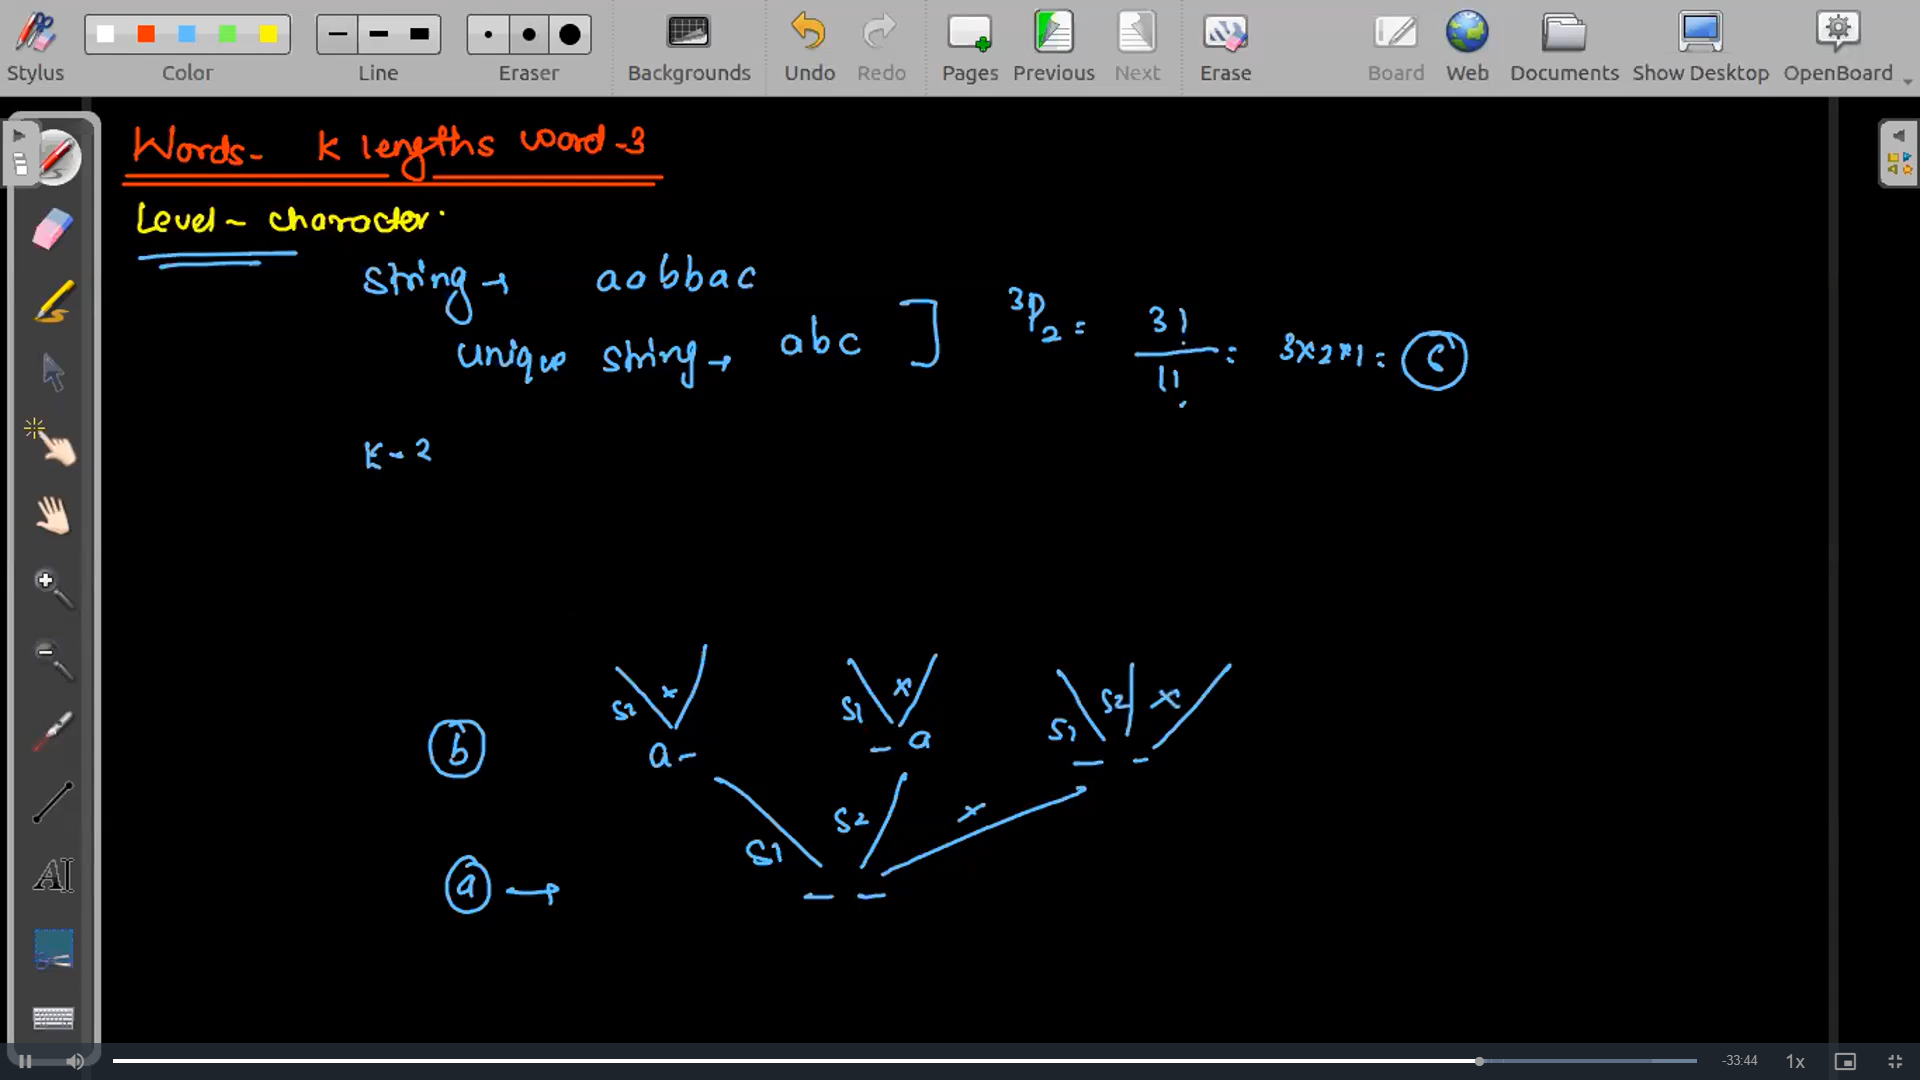 Stylus Color Line Eraser Backgrounds Undo Redo Pages Previous Next Erase Board Web Documents Show Desktop OpenBoard
Words - K lengths word - 3
Level - character
string → aabbac
unique string → abc ] ³P₂ = 3! / 1! = 3x2x1 = 6
K - 2
S2 x S1 x S1 S2 x
b a - - a - -
S1 S2 x
a → - -
-33:44 1x